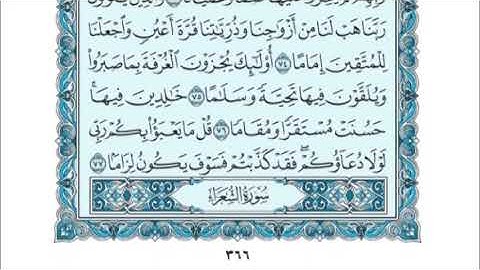 رَبَّنَا هَبْ لَنَا مِنْ أَزْوَٰجِنَا وَذُرِّيَّٰتِنَا قُرَّةَ أَعْيُنٍ وَٱجْعَلْنَا
لِلْمُتَّقِينَ إِمَامًا ٧٤ أُو۟لَٰٓئِكَ يُجْزَوْنَ ٱلْغُرْفَةَ بِمَا صَبَرُوا۟
وَيُلَقَّوْنَ فِيهَا تَحِيَّةً وَسَلَٰمًا ٧٥ خَٰلِدِينَ فِيهَا ۚ
حَسُنَتْ مُسْتَقَرًّا وَمُقَامًا ٧٦ قُلْ مَا يَعْبَؤُا۟ بِكُمْ رَبِّى
لَوْلَا دُعَآؤُكُمْ ۖ فَقَدْ كَذَّبْتُمْ فَسَوْفَ يَكُونُ لِزَامًۢا ٧٧
سُورَةُ الشُّعَرَاءِ
٣٦٦